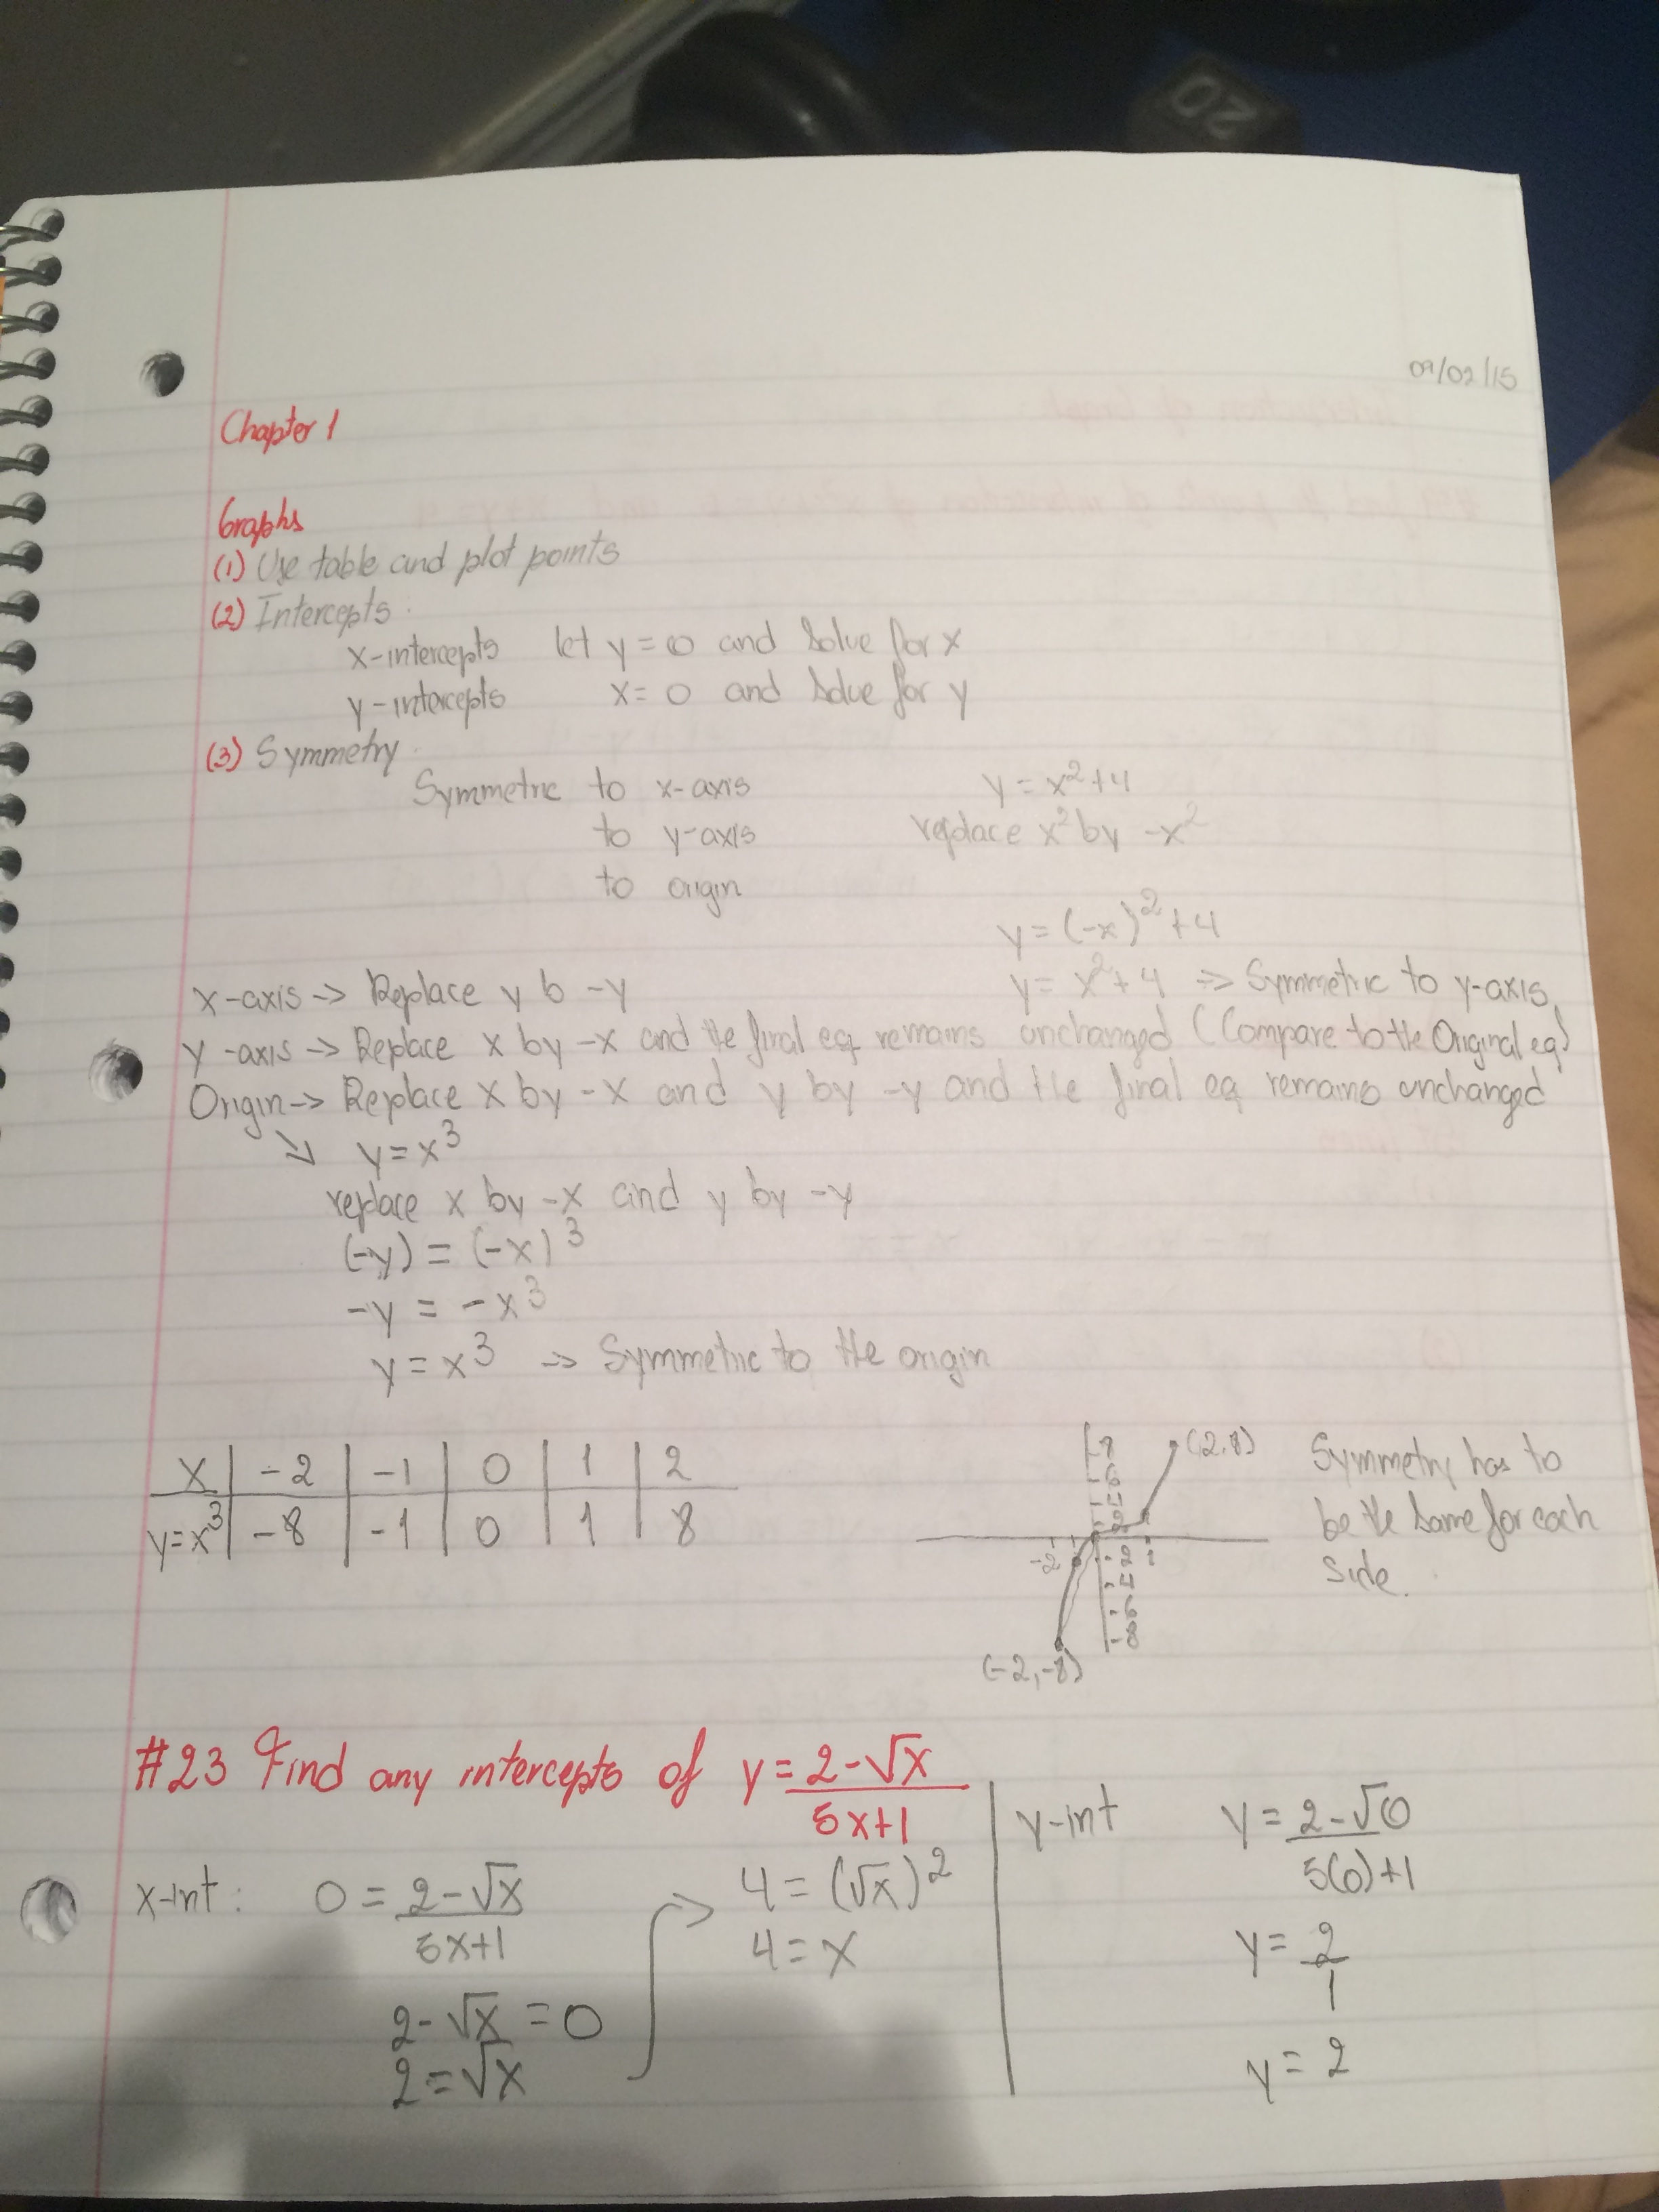 20
09/02/15
Chapter 1
Graphs
(1) Use table and plot points
(2) Intercepts:
x-intercepts let y = 0 and solve for x
y-intercepts x = 0 and solve for y
(3) Symmetry
Symmetric to x-axis
to y-axis
to origin
y = x²+4
replace x² by -x²
y = (-x)²+4
y = x²+4 => Symmetric to y-axis
x-axis -> Replace y b -y
y-axis -> Replace x by -x and the final eq remains unchanged (Compare to the Original eq)
Origin -> Replace x by -x and y by -y and the final eq remains unchanged
y = x³
replace x by -x and y by -y
(-y) = (-x)³
-y = -x³
y = x³ -> Symmetric to the origin
x | -2 | -1 | 0 | 1 | 2
y=x³ | -8 | -1 | 0 | 1 | 8
(2,8)
8
6
4
2
-2 1
-2
-4
-6
-8
(-2,-8)
Symmetry has to
be the same for each
side.
#23 Find any intercepts of y = 2-√x
5x+1
x-int: 0 = 2-√x
5x+1
2-√x = 0
2 = √x
4 = (√x)²
4 = x
y-int y = 2-√0
5(0)+1
y = 2
1
y = 2